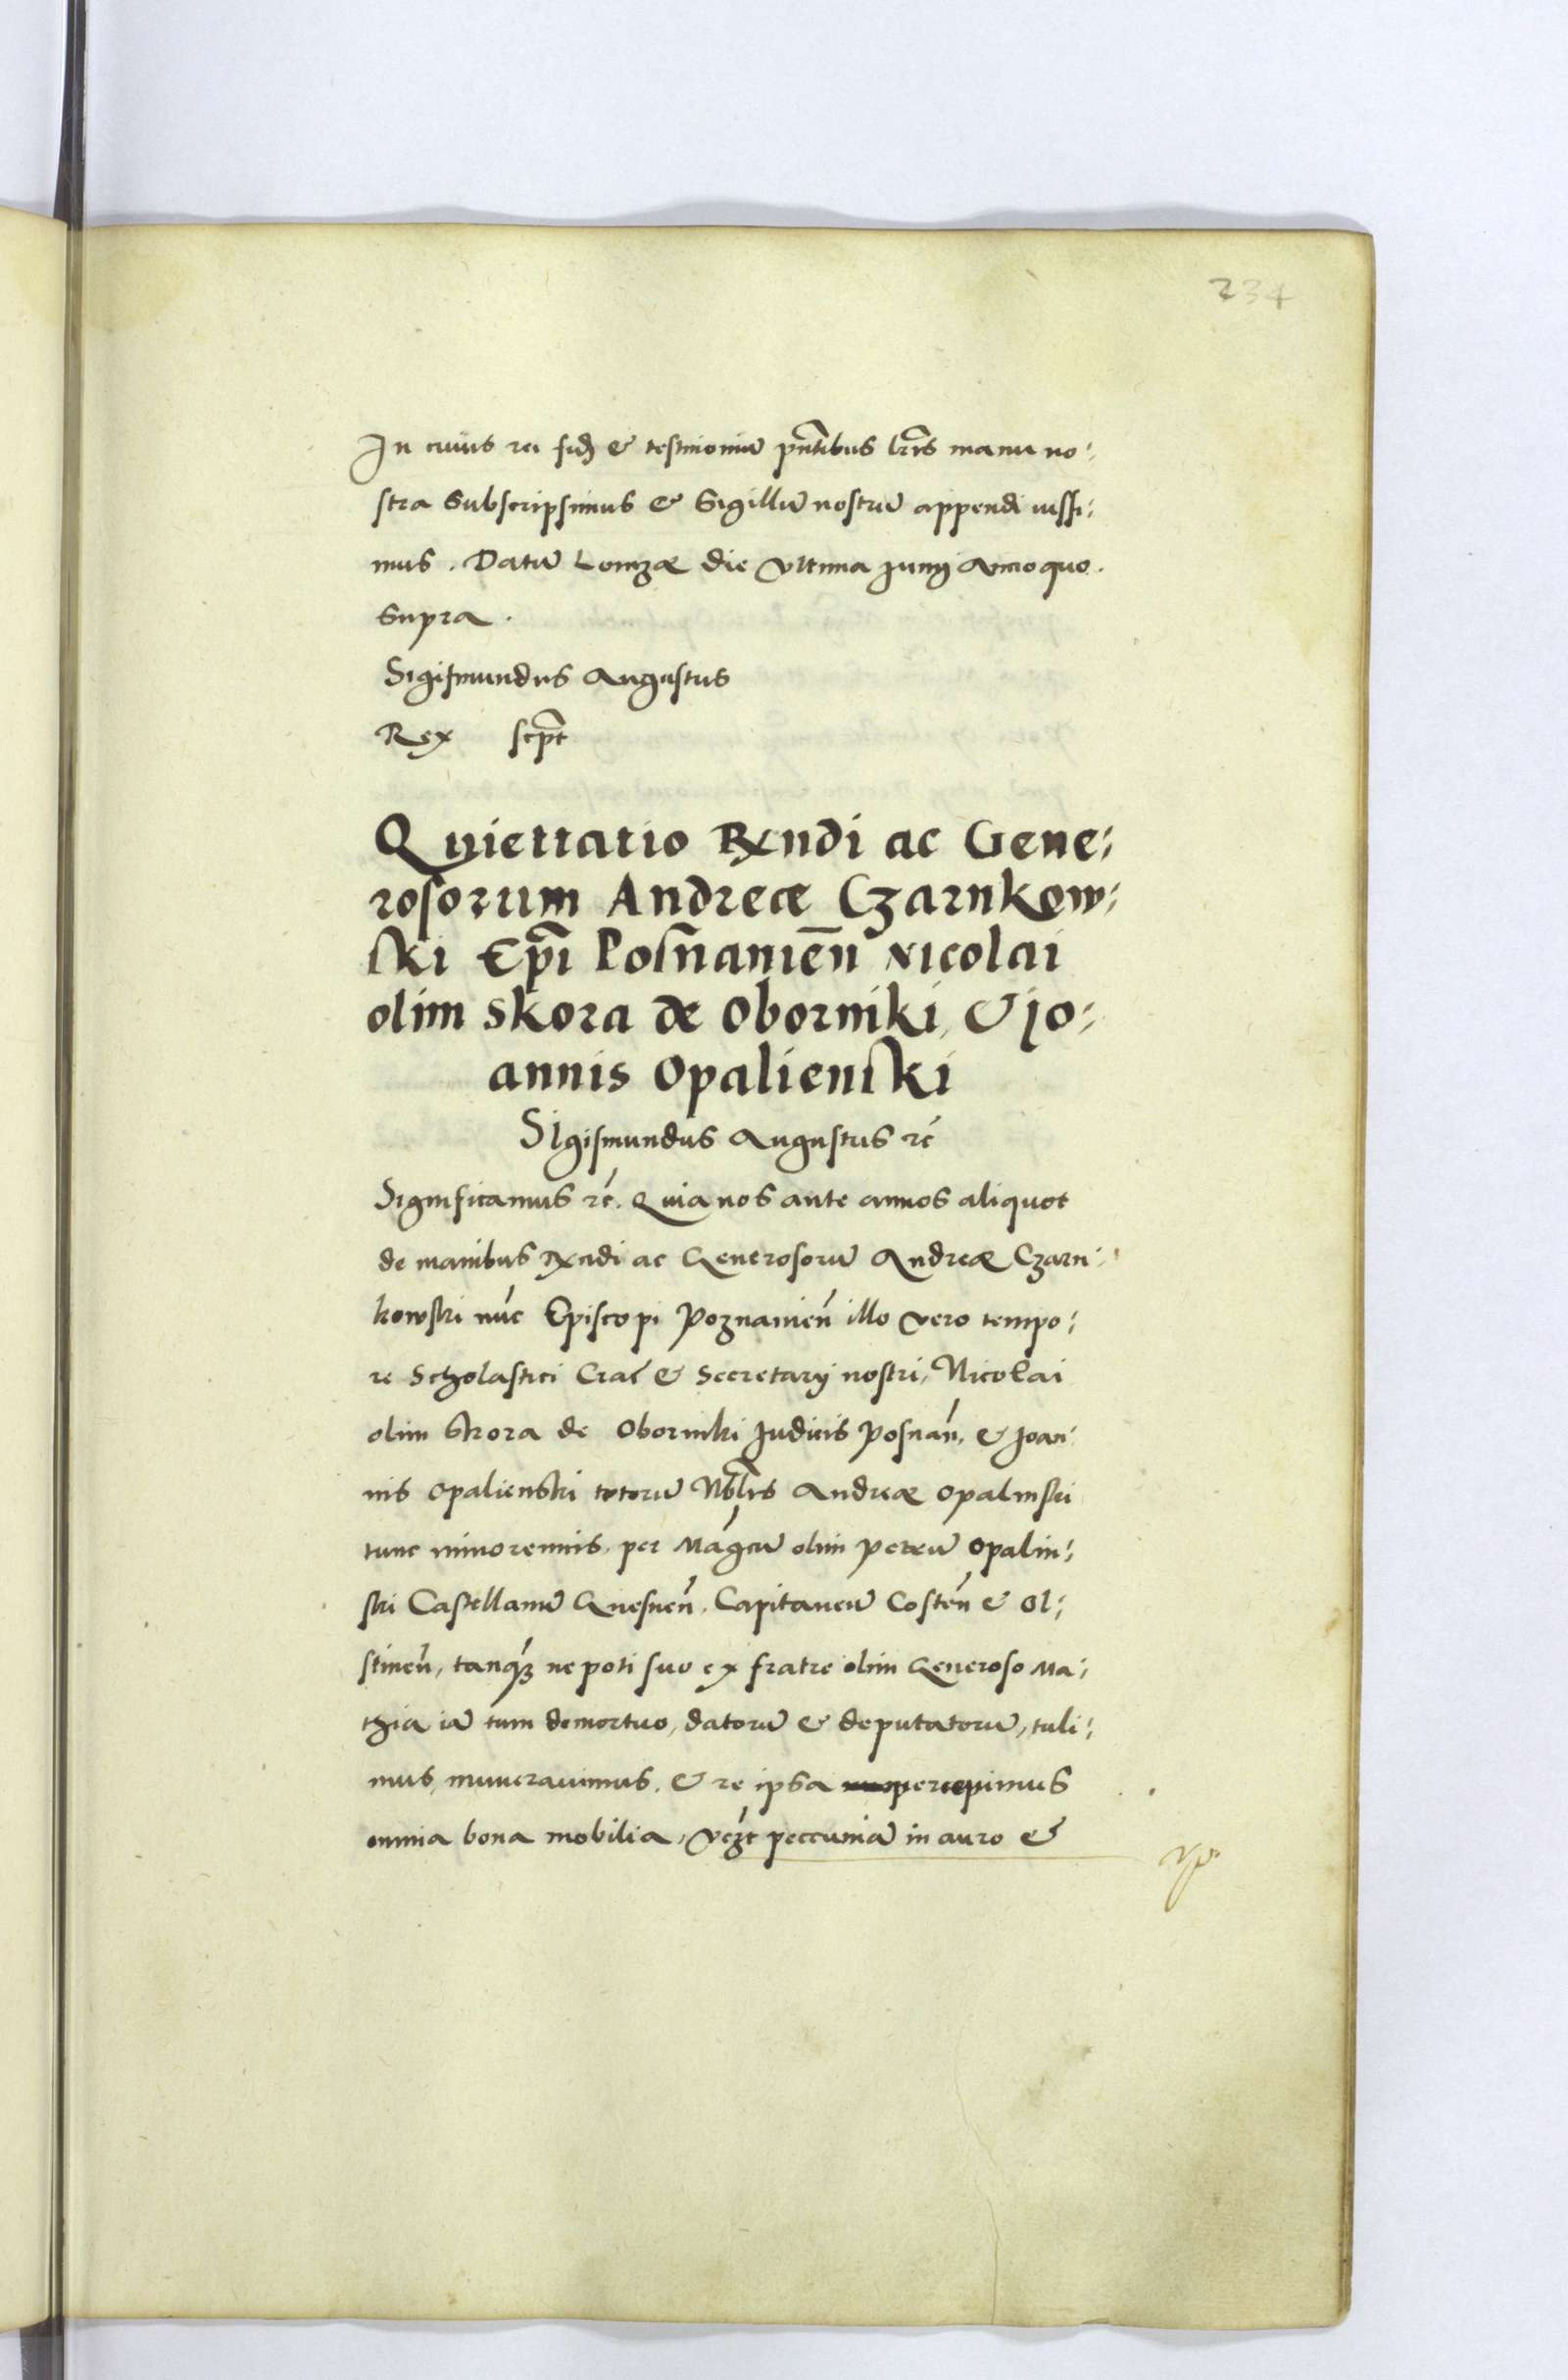 234
In cuius rei fidẽ & testimoniũ pñtibus lr̃is manu no:
stra subscripsimus & Sigillũ nostrũ appendi iussi:
mus. Datũ Lomzae die vltima Junij Anno quo
supra.
Sigismundus Augustus
Rex scp̃t
Quiettatio Rx̃ndi ac Gene:
rosorum Andreae Czarnkow:
ski Ep̃i Posñanieñ Nicolai
olim Skora de Oborniki, & Jo:
annis Opalienski
Sigismundus Augustus rc̃
Significamus rc̃. Quia nos ante annos aliquot
de manibus Rx̃ndi ac Generosorũ Andreae Czarn:
kowski nũc Episcopi Poznanieñ illo vero tempo:
re Scholastici Crac̃ & Secretarij nostri, Nicolai
olim Skora de Oborniki Judicis Posnañ, & Joan:
nis Opalienski totorũ Nb̃lis Andreae Opalinski
tunc minorennis, per Mãgcũ olim Petrũ Opalin:
ski Castellanũ Gnesneñ, Capitaneũ Costeñ & Ol:
stineñ, tanq̃ȝ nepoti suo ex fratre olim Generoso Ma:
thia iã tum demortuo, datorũ & deputatorũ, tuli:
mus, numerauimus, & re ipsa percepimus
omnia bona mobilia, vȝt peccuniã in auro &